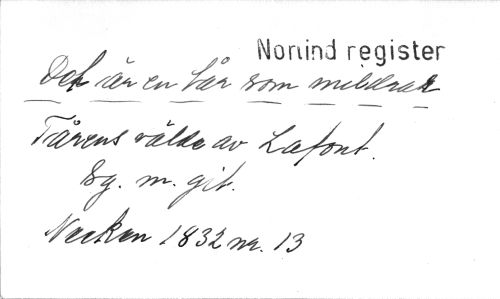 Norlind register
Det är en tår som mildrar
Tårens välde av Lafont.
Sg. m. git.
Necken 1832 nr. 13